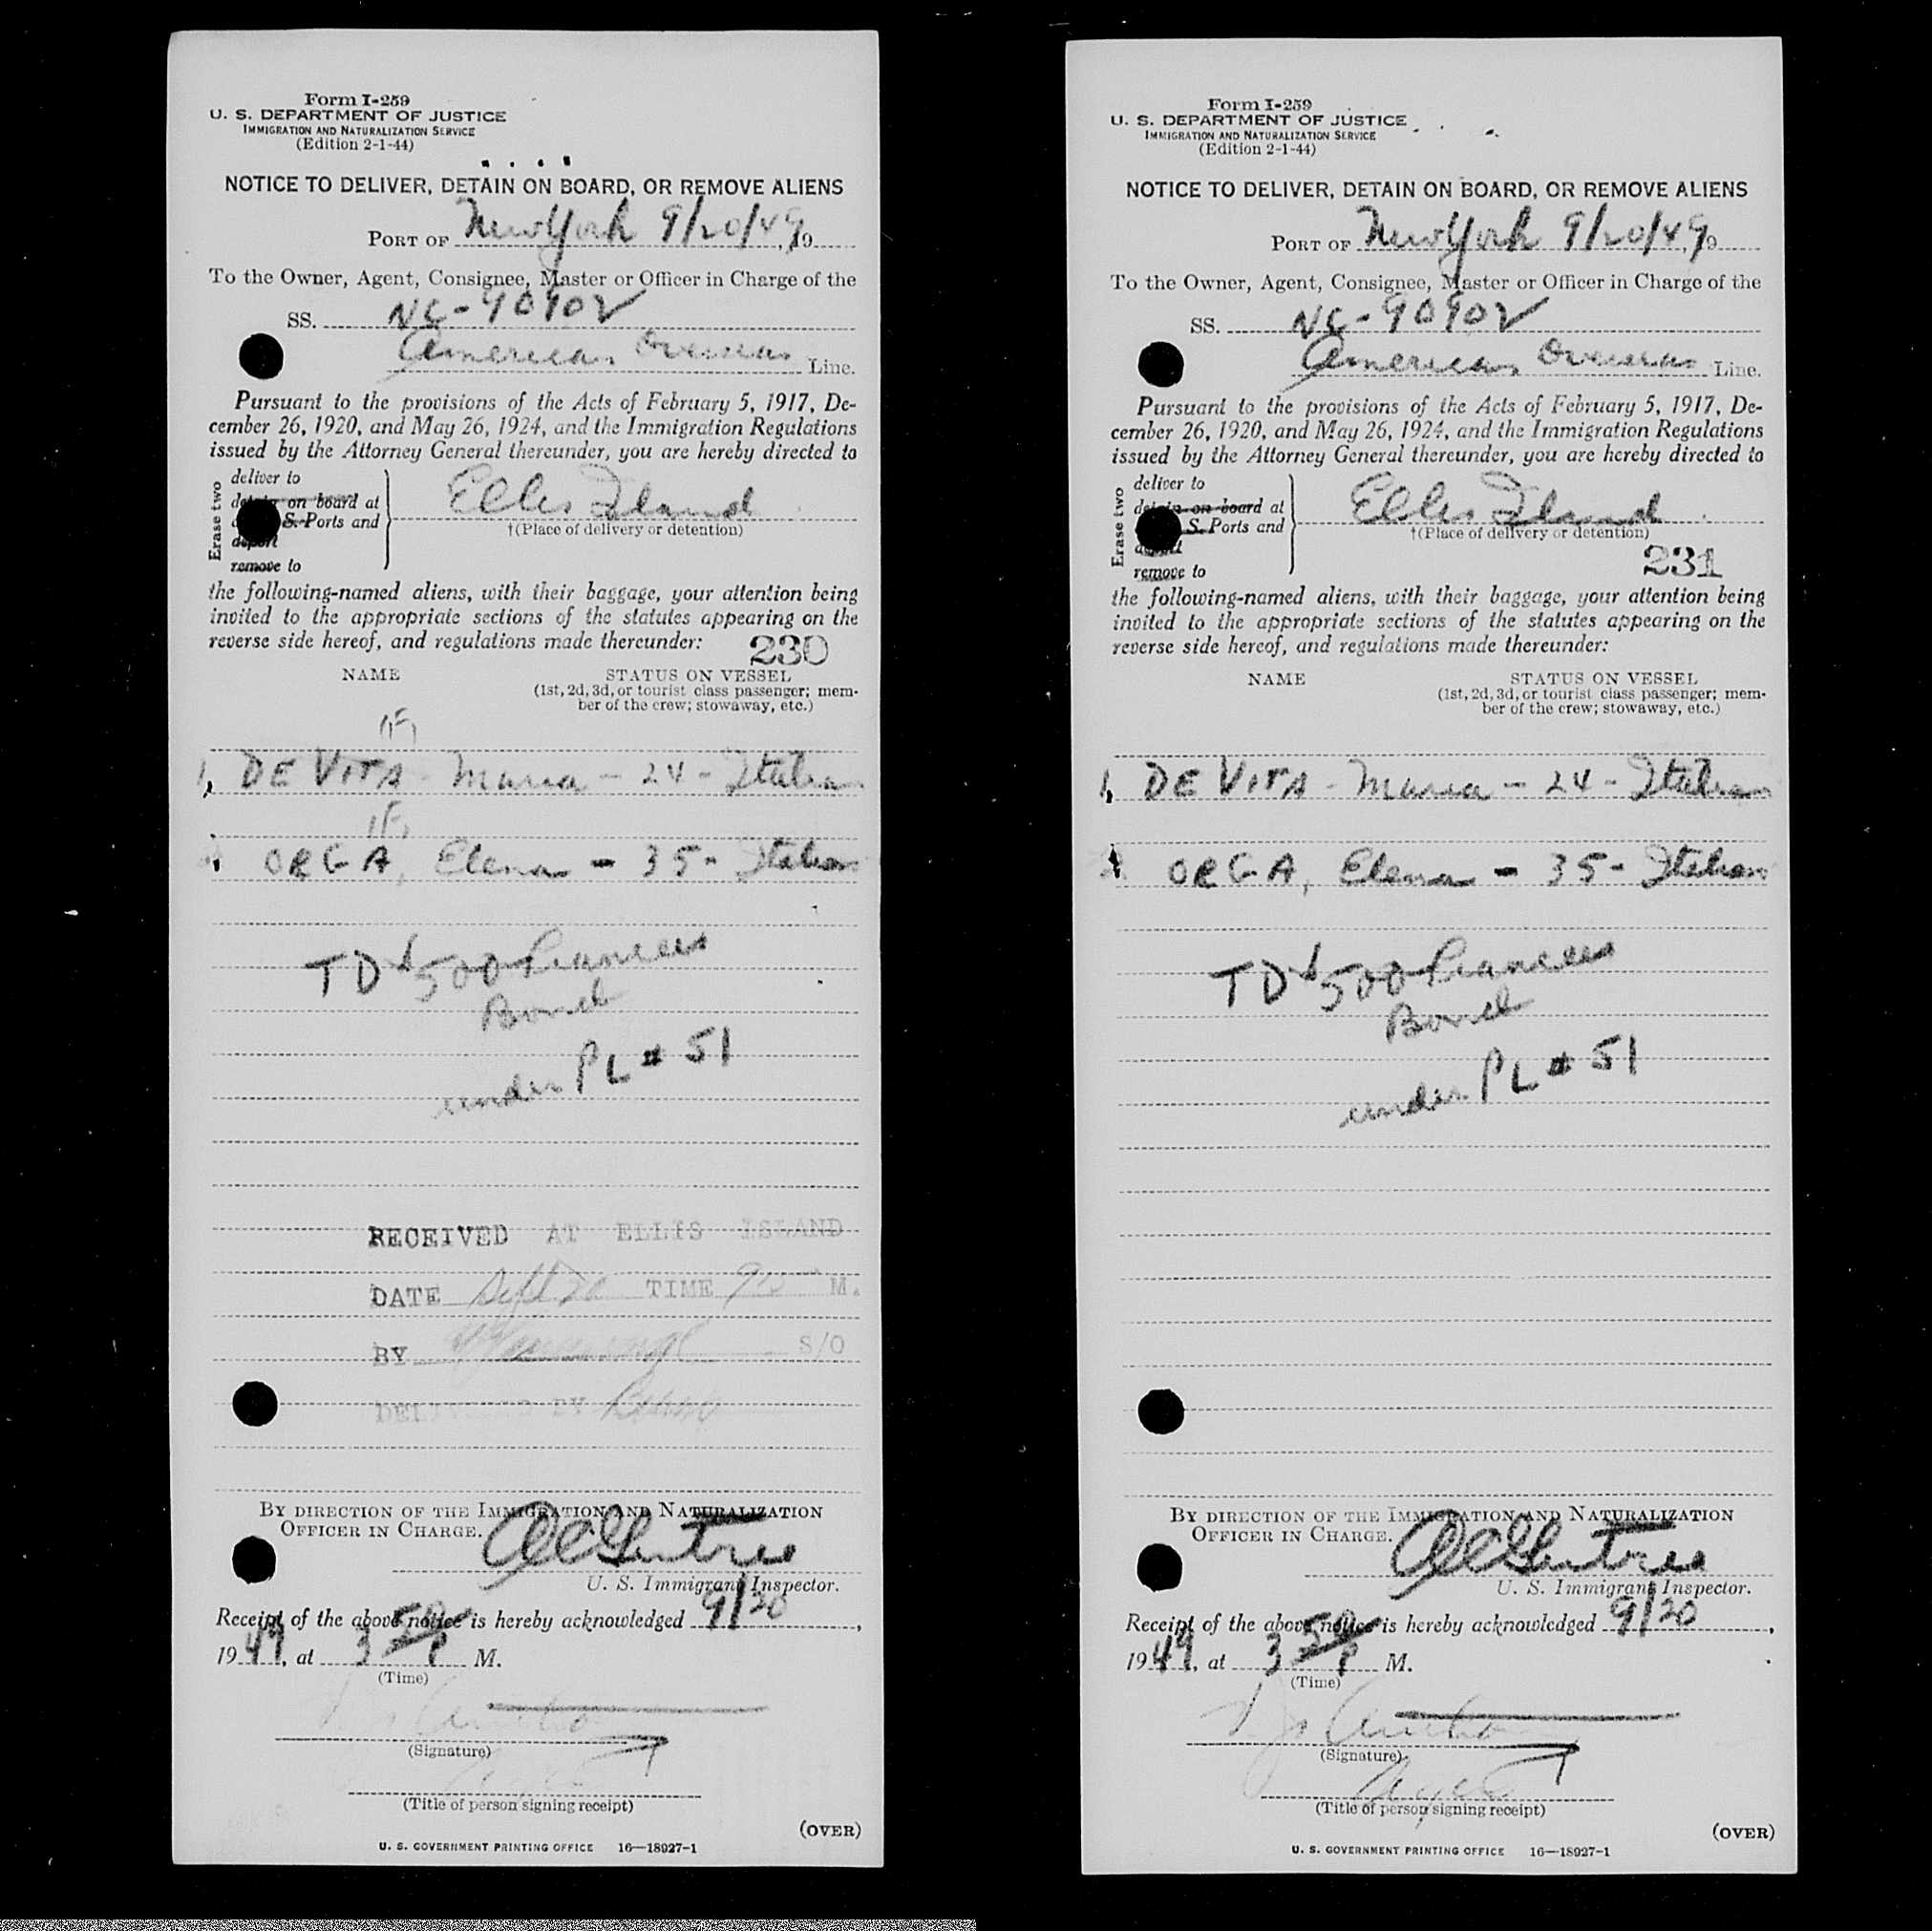 Form I-259
U. S. DEPARTMENT OF JUSTICE
IMMIGRATION AND NATURALIZATION SERVICE
(Edition 2-1-44)
NOTICE TO DELIVER, DETAIN ON BOARD, OR REMOVE ALIENS
PORT OF New York 9/20/49, 19
To the Owner, Agent, Consignee, Master or Officer in Charge of the
SS. NC-90902
American Overseas Line.
Pursuant to the provisions of the Acts of February 5, 1917, De-
cember 26, 1920, and May 26, 1924, and the Immigration Regulations
issued by the Attorney General thereunder, you are hereby directed to
Erase two
deliver to
detain on board at
S. Ports and
deport
remove to
Ellis Island
†(Place of delivery or detention)
the following-named aliens, with their baggage, your attention being
invited to the appropriate sections of the statutes appearing on the
reverse side hereof, and regulations made thereunder: 230
NAME STATUS ON VESSEL
(1st, 2d, 3d, or tourist class passenger; mem-
ber of the crew; stowaway, etc.)
(F)
1, DE VITA - Maria - 24 - Italian
(F)
ORGA, Elena - 35 - Italian
TD $500 Fiancees
Bond
under PL # 51
RECEIVED AT ELLIS ISLAND
DATE Sept 20 TIME M.
BY S/O
DELIVERED BY
BY DIRECTION OF THE IMMIGRATION AND NATURALIZATION
OFFICER IN CHARGE.
U. S. Immigrant Inspector.
Receipt of the above notice is hereby acknowledged 9/20,
1949, at 3 50 P M.
(Time)
(Signature)
(Title of person signing receipt)
(OVER)
U. S. GOVERNMENT PRINTING OFFICE 16—18927-1
Form I-259
U. S. DEPARTMENT OF JUSTICE
IMMIGRATION AND NATURALIZATION SERVICE
(Edition 2-1-44)
NOTICE TO DELIVER, DETAIN ON BOARD, OR REMOVE ALIENS
PORT OF New York 9/20/49, 19
To the Owner, Agent, Consignee, Master or Officer in Charge of the
SS. NC-90902
American Overseas Line.
Pursuant to the provisions of the Acts of February 5, 1917, De-
cember 26, 1920, and May 26, 1924, and the Immigration Regulations
issued by the Attorney General thereunder, you are hereby directed to
Erase two
deliver to
detain on board at
S. Ports and
remove to
Ellis Island
†(Place of delivery or detention)
231
the following-named aliens, with their baggage, your attention being
invited to the appropriate sections of the statutes appearing on the
reverse side hereof, and regulations made thereunder:
NAME STATUS ON VESSEL
(1st, 2d, 3d, or tourist class passenger; mem-
ber of the crew; stowaway, etc.)
1, DE VITA - Maria - 24 - Italian
ORGA, Elena - 35 - Italian
TD $500 Fiancees
Bond
under PL # 51
BY DIRECTION OF THE IMMIGRATION AND NATURALIZATION
OFFICER IN CHARGE.
U. S. Immigrant Inspector.
Receipt of the above notice is hereby acknowledged 9/20,
1949, at 3 50 P M.
(Time)
(Signature)
(Title of person signing receipt)
(OVER)
U. S. GOVERNMENT PRINTING OFFICE 16—18927-1